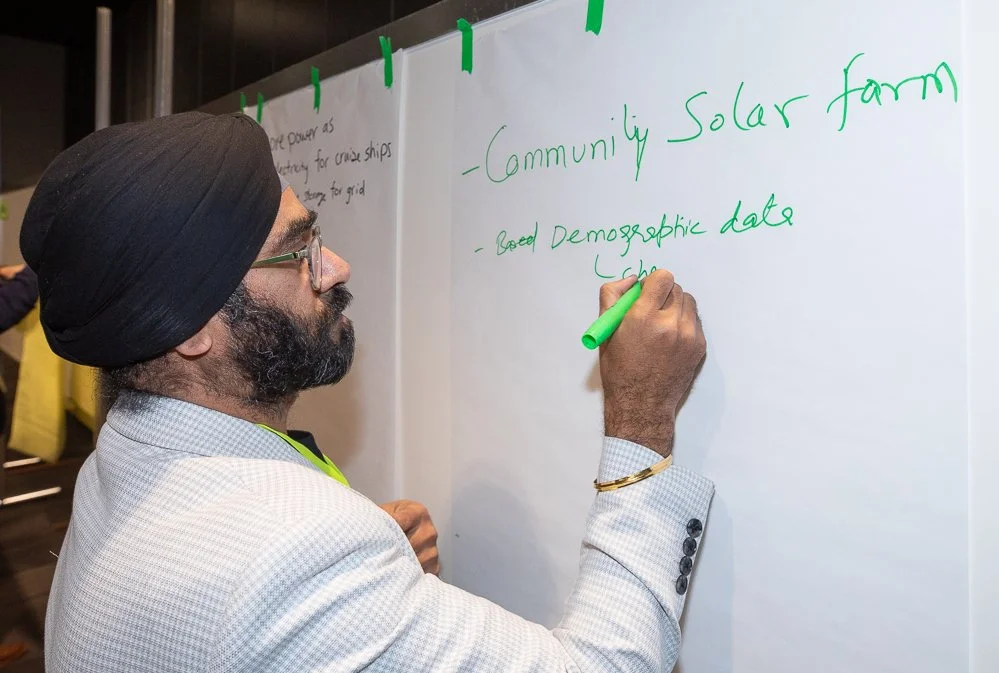 ore power as
ectricity for cruise ships
storage for grid
- Community Solar farm
- Based Demographic data
che